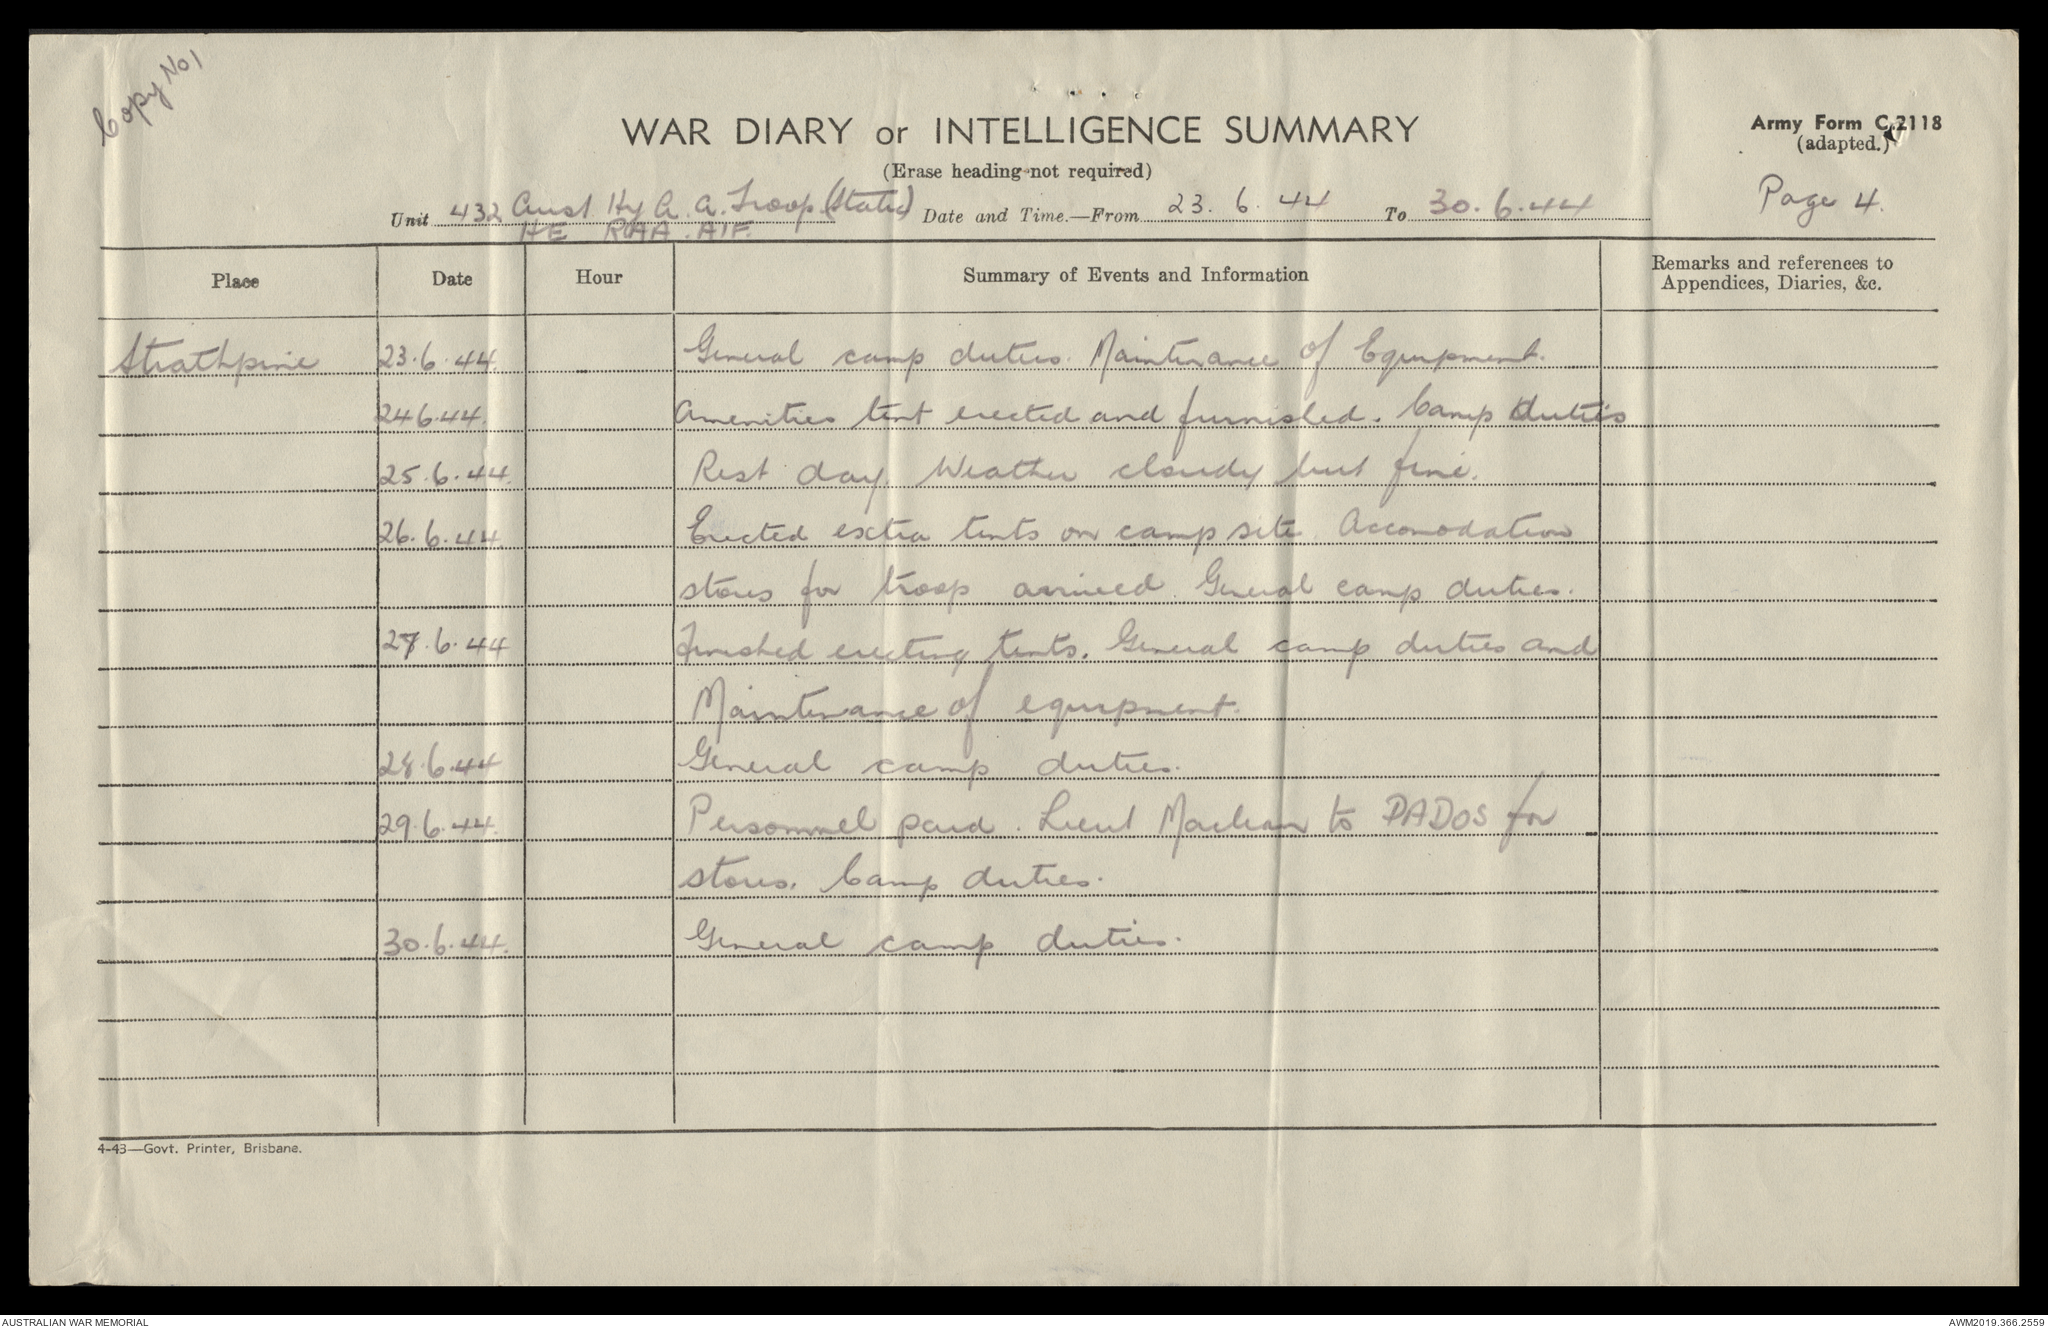 Copy No 1
WAR DIARY or INTELLIGENCE SUMMARY
Army Form C.2118
(Erase heading not required)
(adapted.)
Page 4.
Unit 432 Aust Hy A. A. Troop (Static) Date and Time.—From 23. 6. 44 To 30. 6. 44
HE RAA. AIF.
Place Date Hour Summary of Events and Information Remarks and references to
Appendices, Diaries, &c.
Strathpine 23.6.44. General camp duties. Maintenance of Equipment.
24.6.44. Amenities tent erected and furnished. Camp duties
25.6.44. Rest day. Weather cloudy but fine.
26.6.44. Erected extra tents on camp site. Accomodation
stores for troop arrived. General camp duties.
27.6.44 Finished erecting tents. General camp duties and
Maintenance of equipment.
28.6.44 General camp duties.
29.6.44. Personnel paid. Lieut Maclean to DADOS for
stores. Camp duties.
30.6.44. General camp duties.
4-43—Govt. Printer, Brisbane.
AUSTRALIAN WAR MEMORIAL
AWM2019.366.2559